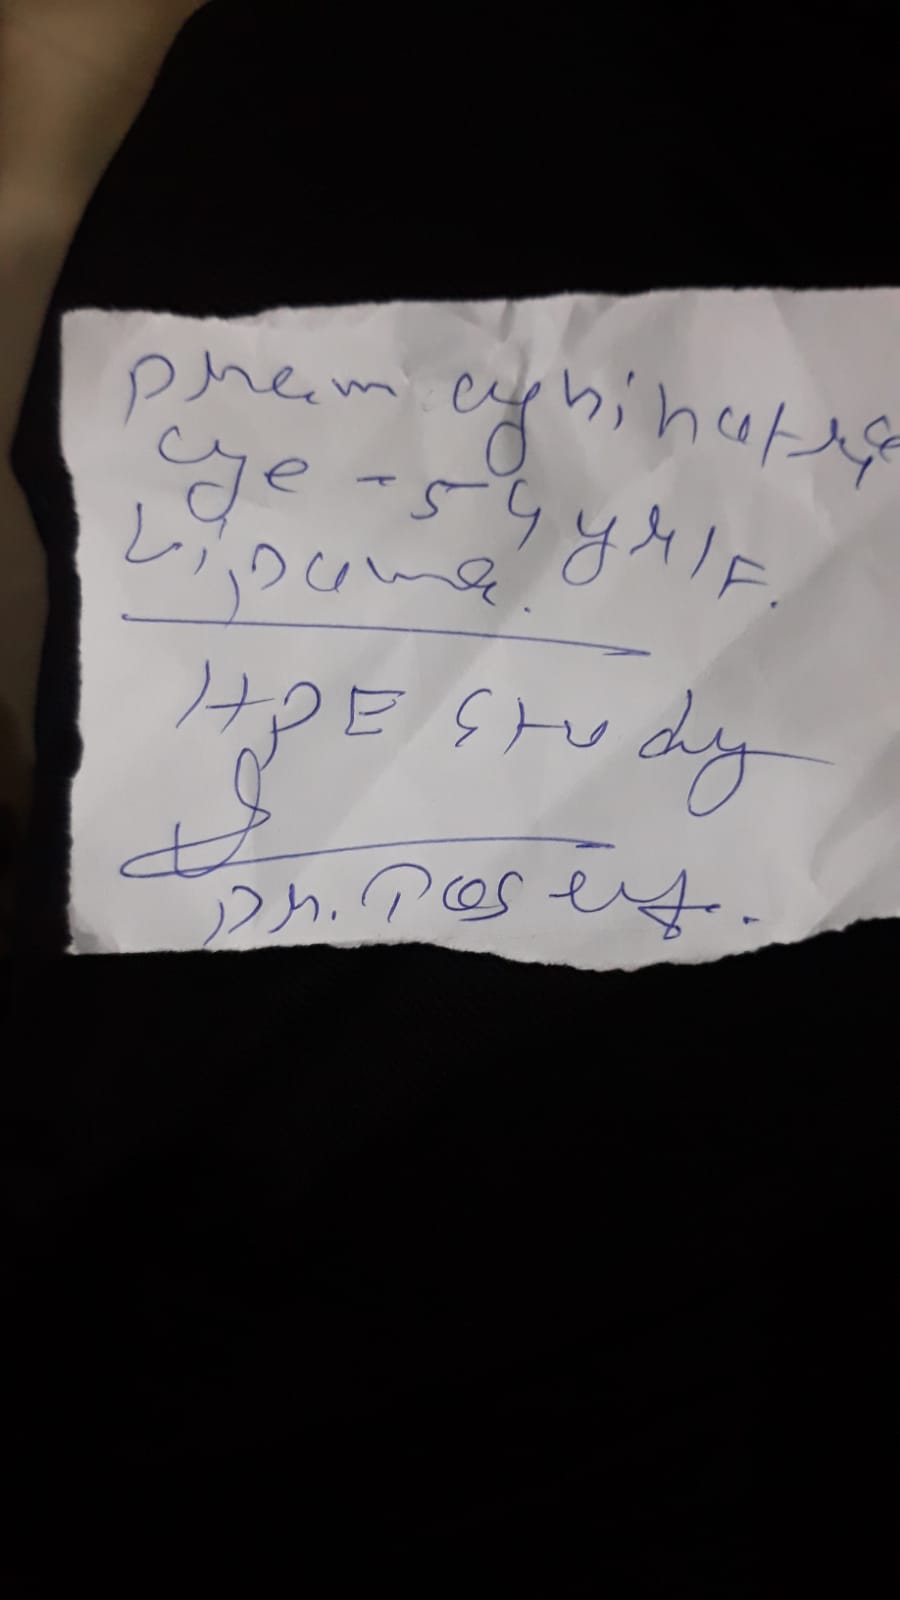 Prem agnihotri
age - 54 yr/F.
Lipoma.
HPE Study
Dr.